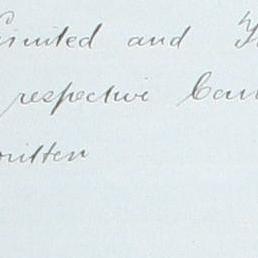 Limited and
respective
written